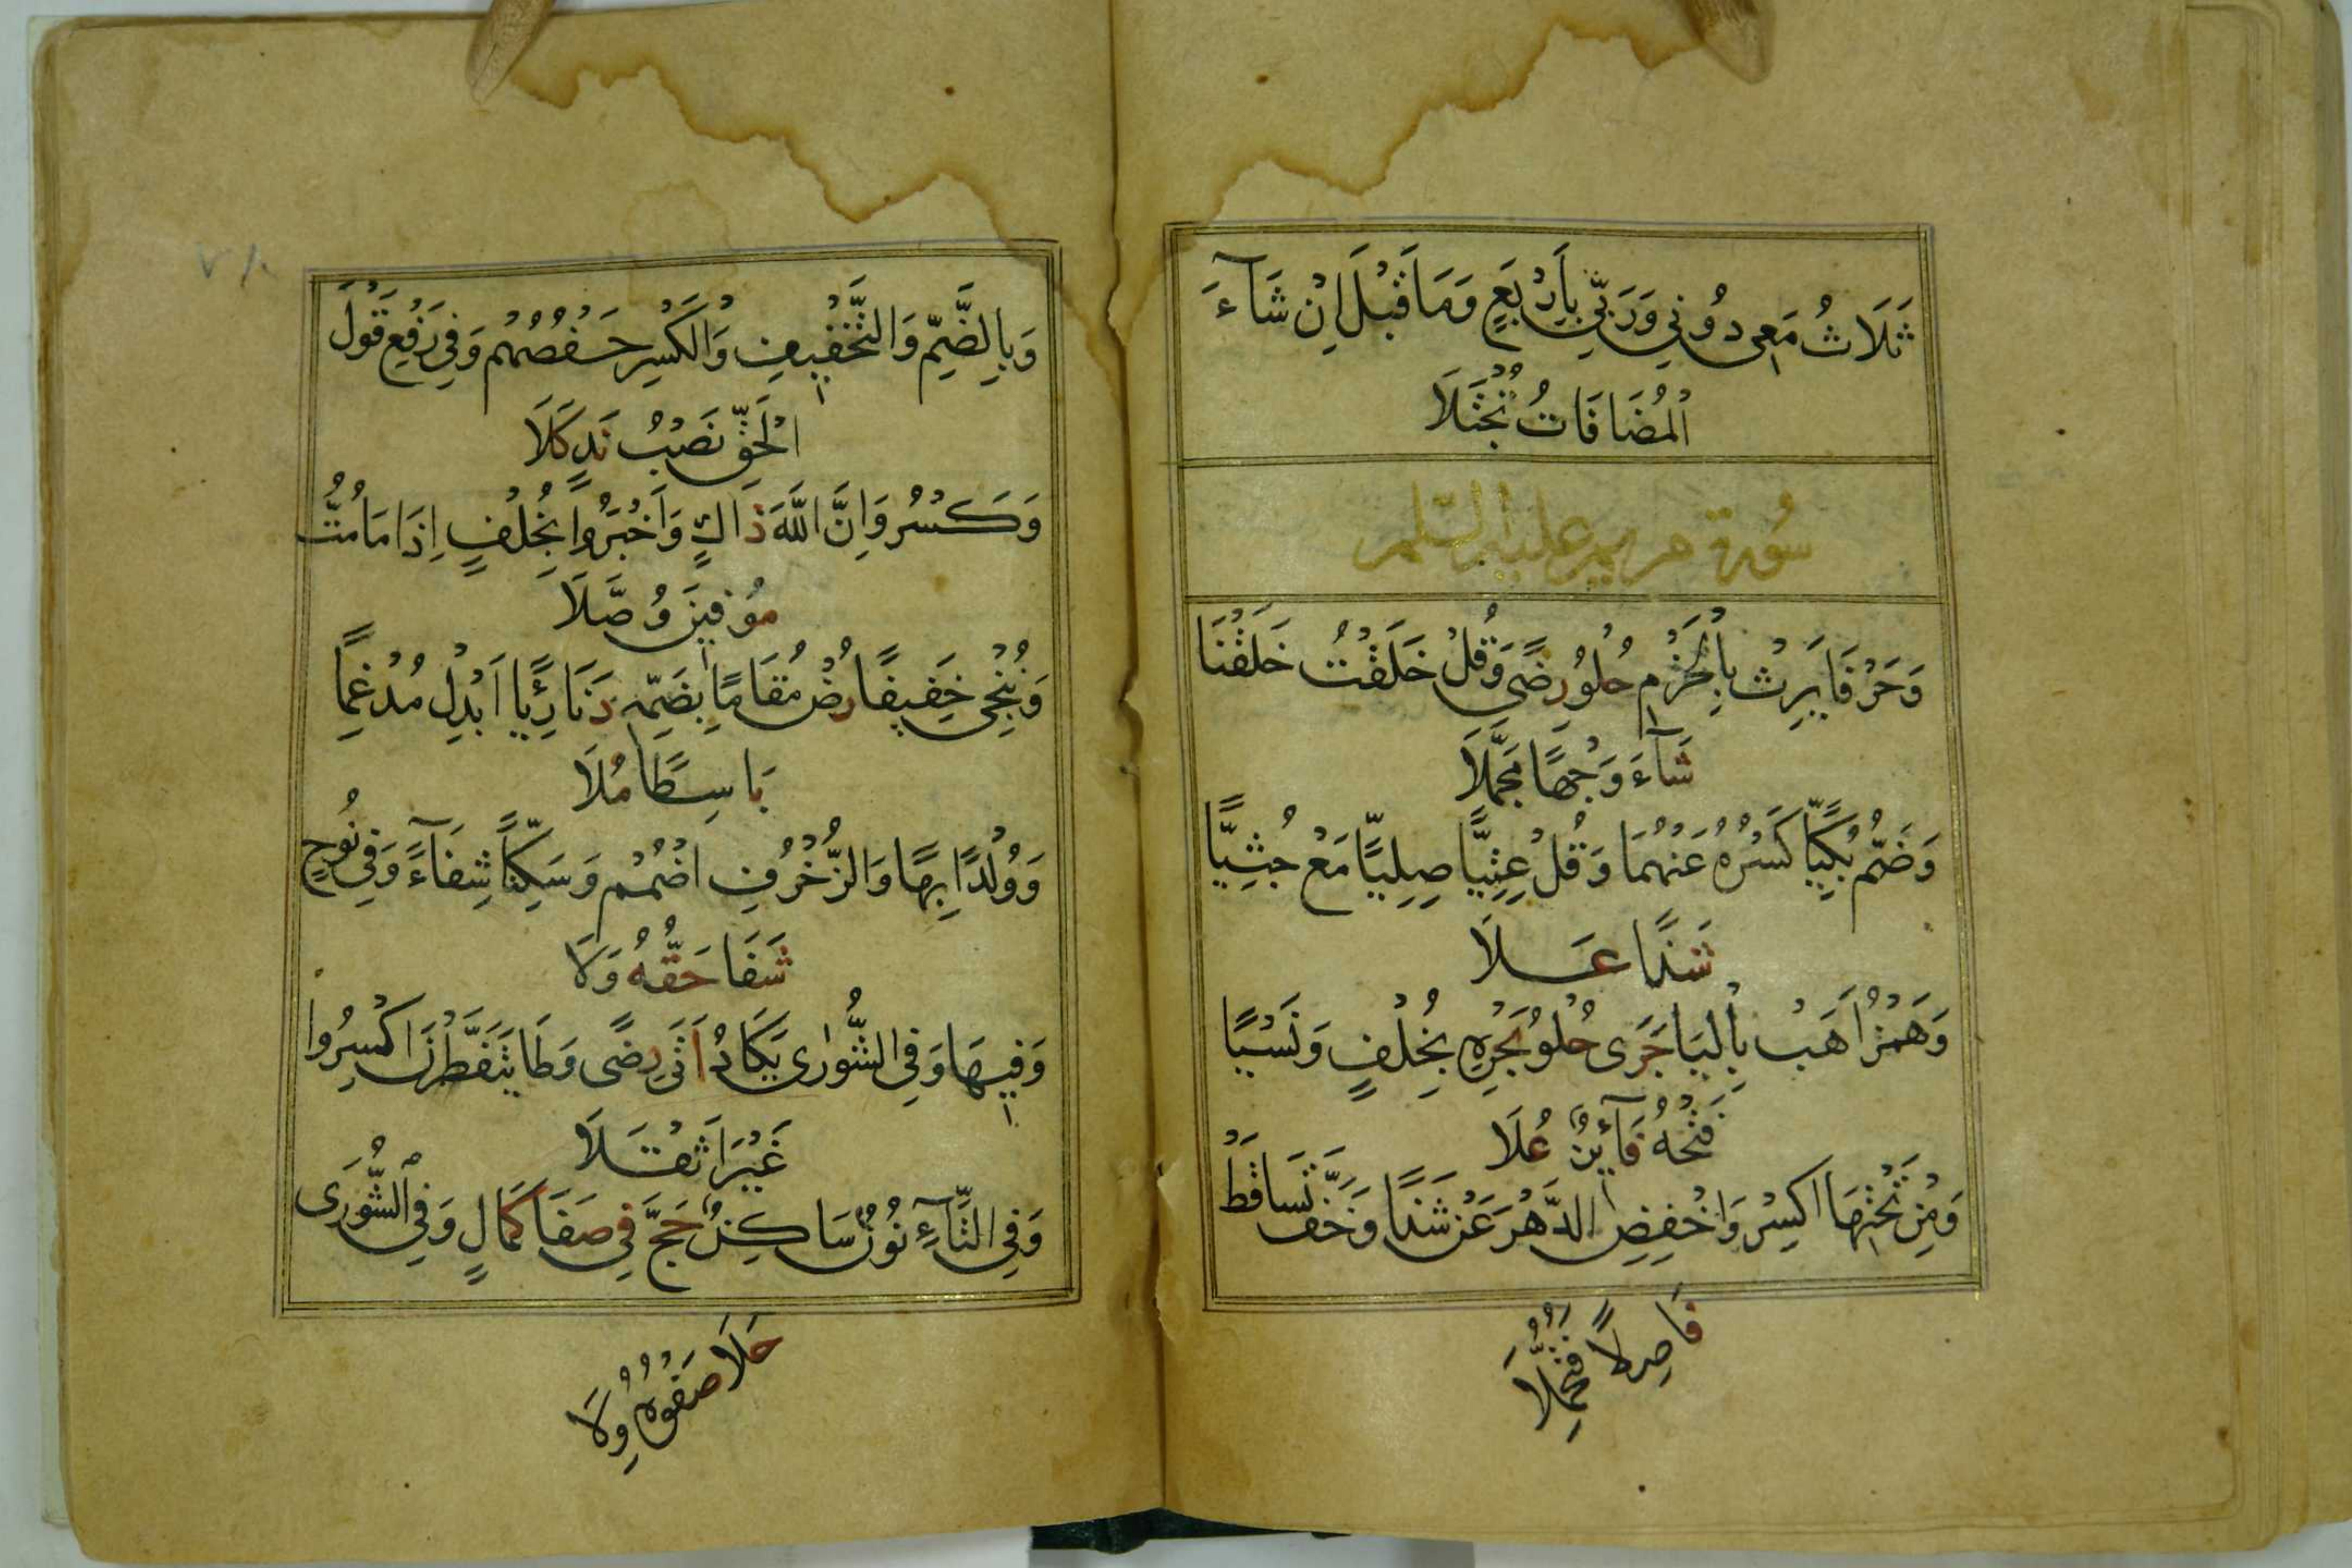 ثَلَاثُ مَعِي دُونِي وَرَبِّي بِأَرْبَعٍ وَمَا قَبْلَ اِنْ شَآءَ
الْمُضَافَاتُ تُجْتَلَا
سُورَة مريم عليها السلم
وَحَرْفَا يَرِثْ بِالْجَزْمِ حُلْوُ رِضًى وَقُلْ خَلَقْتُ خَلَقْنَا
شَآءَ وَجْهًا مُجَمَّلَا
وَضَمُّ بُكِيًّا كَسْرُهُ عَنْهُمَا وَقُلْ عِتِيًّا صِلِيًّا مَعْ جُثِيًّا
شَذًا عَلَا
وَهَمْزُ اَهَبْ بِالْيَا جَرَى حُلْوُ بَحْرِهِ بِخُلْفٍ وَنَسْيًا
فَتْحُهُ فَآئِزٌ عُلَا
وَمِنْ تَحْتِهَا اكْسِرْ وَاخْفِضِ الدَّهْرَ عَنْ شَذًا وَخَفَّ تَسَاقَطْ
فَاصِلًا فَتُحُمِّلَا
وَبِالضَّمِّ وَالتَّخْفِيفِ وَالْكَسْرِ حَفْصُهُمْ وَفِي رَفْعِ قَوْلَ
الْحَقِّ نَصْبُ نَدٍ كَلَا
وَكَسْرُ وَاِنَّ اللَّهَ ذَاكٍ وَاَخْبَرُوا بِخُلْفٍ اِذَا مَا مُتُّ
مُوْفِينَ وُصَّلَا
وَنُنْجِي خَفِيفًا رُضْ مُقَامًا بِضَمِّهِ دَنَا رِئْيًا اَبْدِلْ مُدْغِمًا
بَاسِطًا مُلَا
وَوُلْدًا بِهَا وَالزُّخْرُفِ اضْمُمْ وَسَكِّنًا شِفَآءً وَفِي نُوحٍ
شَفَا حَقُّهُ وَلَا
وَفِيهَا وَفِي الشُّورَى يَكَادُ اَتَى رِضًى وَطَا يَتَفَطَّرْنَ اكْسِرُوا
غَيْرَ اَثْقَلَا
وَفِي التَّآءِ نُونٌ سَاكِنٌ حَجَّ فِي صَفَا كَمَالٍ وَفِي الشُّورَى
حَلَا صَفْوُهُ وِلَا
٧٨